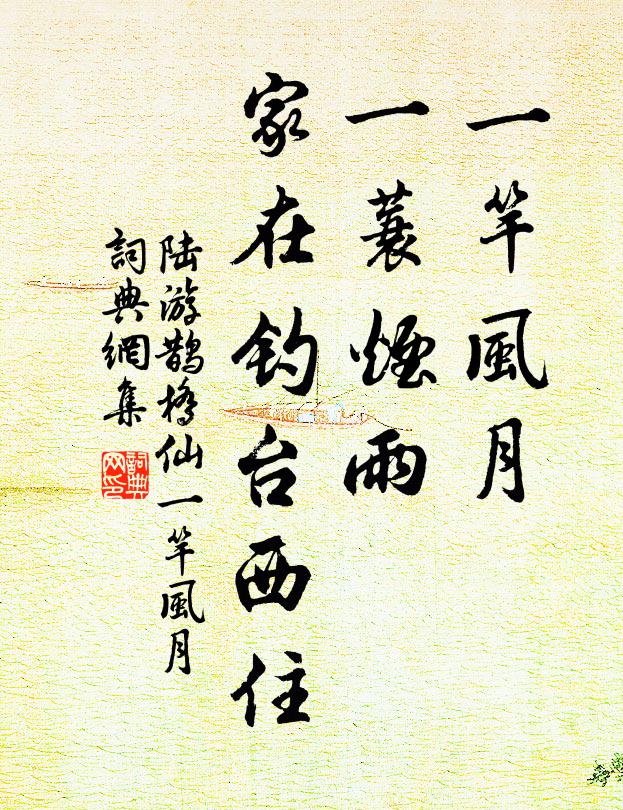 一竿風月
一蓑煙雨
家在釣台西住
陆游鵲橋仙一竿風月
詞典網集
詞典
网印